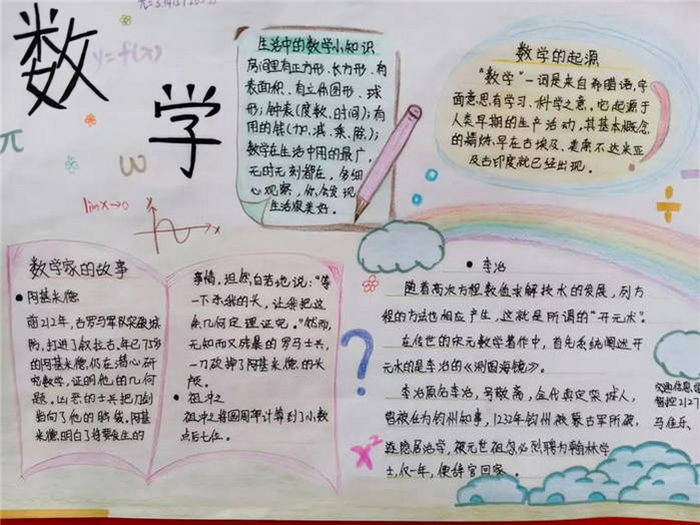 数学
y=f(x)
π
ω
lim x→0
y
x
生活中的数学小知识
房间里有正方形、长方形、有
表面积、有立体图形、球
形；钟表(度数、时间)；有
用的钱(加、减、乘、除)；
数学在生活中用的最广，
无时无刻都在，多细
心观察，你会发现
生活很美好。
数学的起源
“数学”一词是来自希腊语，字
面意思有学习、科学之意。它起源于
人类早期的生产活动，其基本概念
的精炼，早在古埃及、美索不达米亚
及古印度就已经出现。
数学家的故事
•阿基米德
前212年，古罗马军队突破城
防，打进了叙拉古，年已75岁
的阿基米德，仍在潜心研
究数学，证明他的几何
题。凶恶的士兵把刀剑
指向了他的時候。阿基
米德明白了将要发生的
事情，坦然自若地说：“等
一下杀我的头，让我把这
条几何定理证完。”然而，
无知而又残暴的罗马士兵，
一刀砍掉了阿基米德的头
颅。
•祖冲之
祖冲之将圆周率计算到了小数
点后七位。
?
x²
÷
•李冶
随着高次方程数值求解技术的发展，列方
程的方法也相应产生，这就是所谓的“开元术”。
在传世的宋元数学著作中，首先系统阐述开
元术的是李冶的《测圆海镜》。
李冶原名李治，号敬斋，金代真定栾城人，
曾被任为钧州知事，1232年钧州被蒙古军所破，
遂隐居治学，被元世祖忽必烈聘为翰林学
士，仅一年，便辞官回家。
交通信息学院
智控2127
马佳乐